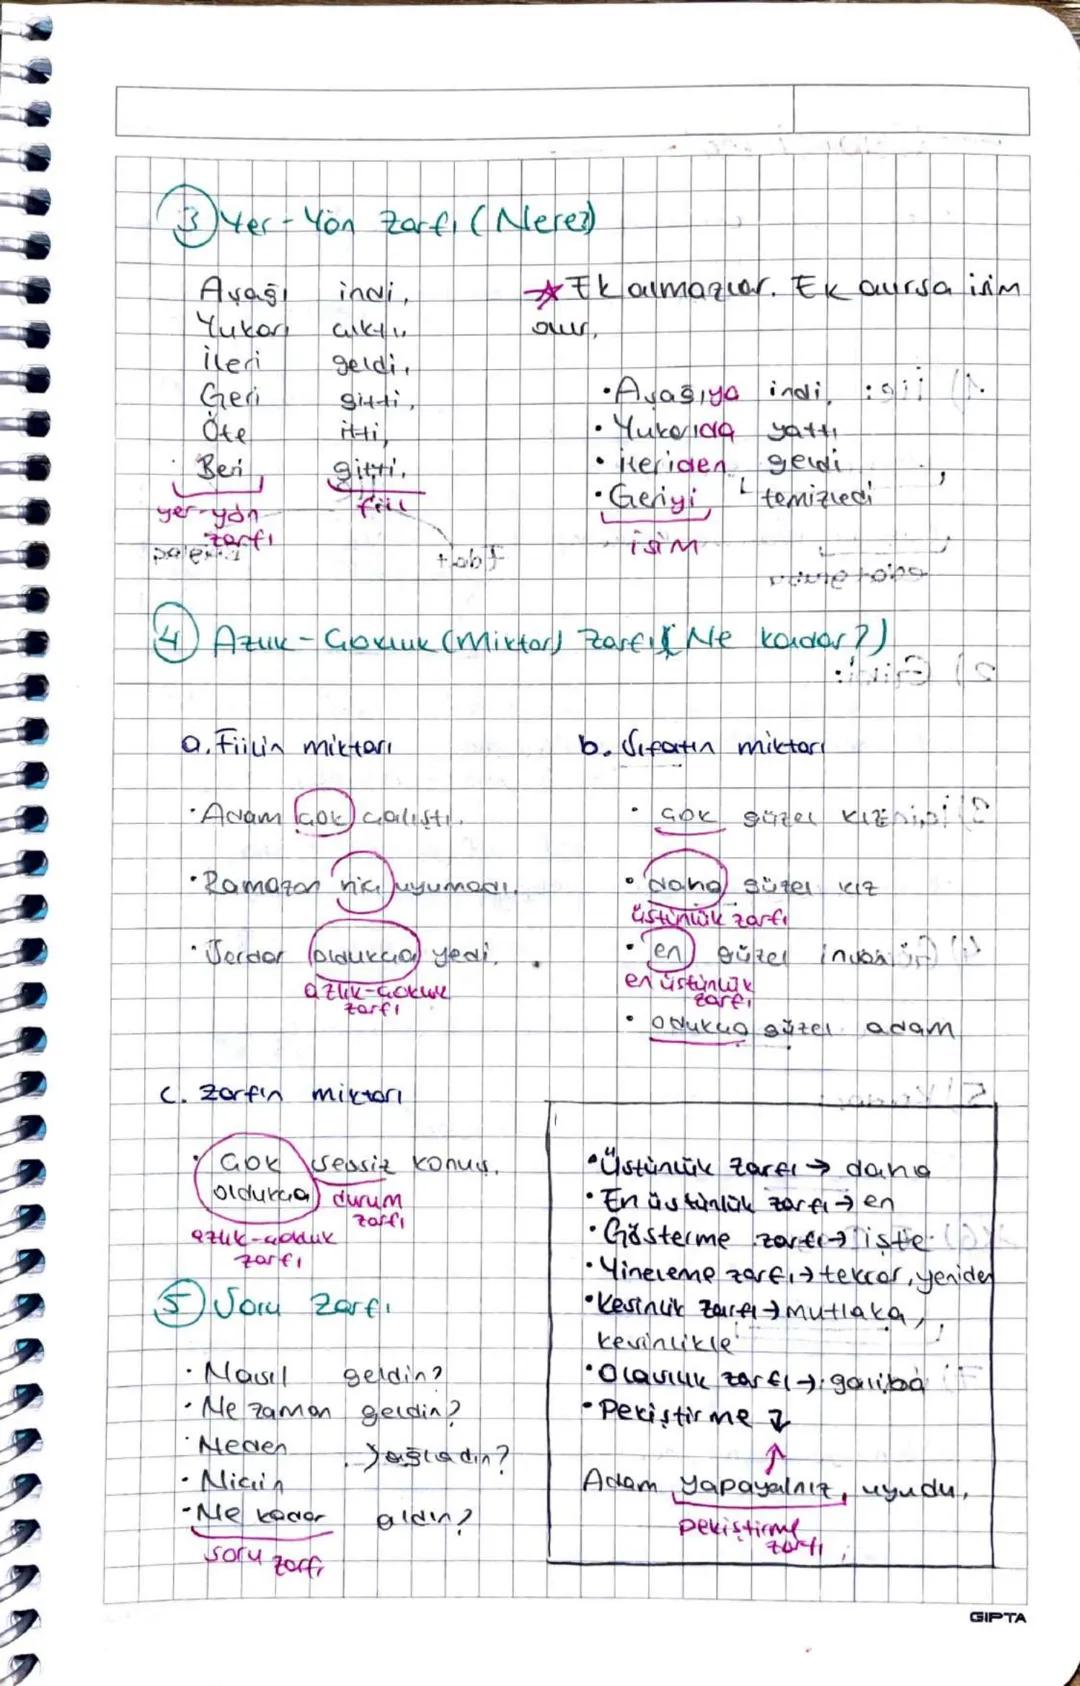 3) Yer-Yön Zarfı (Nere?)
Aşağı indi,
Yukarı çıktı,
İleri geldi,
Geri gitti,
Öte itti,
Beri gitti,
yer-yön zarfı
fiil
☆ Ek almazlar. Ek alırsa isim
olur.
• Aşağıya indi,
• Yukarıda yattı
• ileriden geldi
• Geriyi temizledi
isim
4) Azlık-Çokluk (Miktar) Zarfı (Ne kadar?)
a. Fiilin miktarı
• Adam çok çalıştı.
• Ramazan hiç uyumadı.
• Serdar oldukça yedi.
azlık-çokluk
zarfı
b. Sıfatın miktarı
• çok güzel kız
• daha güzel kız
üstünlük zarfı
• en güzel insan
en üstünlük
zarfı
• oldukça güzel adam
c. Zarfın miktarı
• Çok sessiz konuş.
oldukça
durum
zarfı
azlık-çokluk
zarfı
5) Soru Zarfı
• Nasıl geldin?
• Ne zaman geldin?
• Neden ağladın?
• Niçin
• Ne kadar aldın?
soru zarfı
• Üstünlük zarfı → daha
• En üstünlük zarfı → en
• Gösterme zarfı → işte
• Yineleme zarfı → tekrar, yeniden
• Kesinlik zarfı → mutlaka,
kesinlikle
• Olasılık zarfı → galiba
• Pekiştirme ↓
Adam yapayalnız, uyudu,
pekiştirme
zarfı
GIPTA